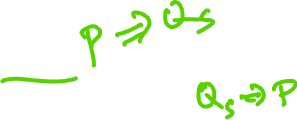 P ⇒ Qs
Qs ⇒ P